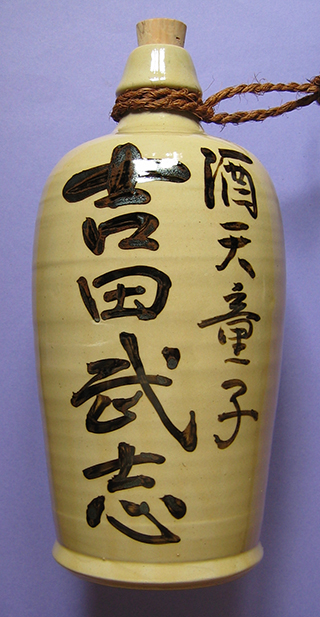 酒天童子
吉田武志